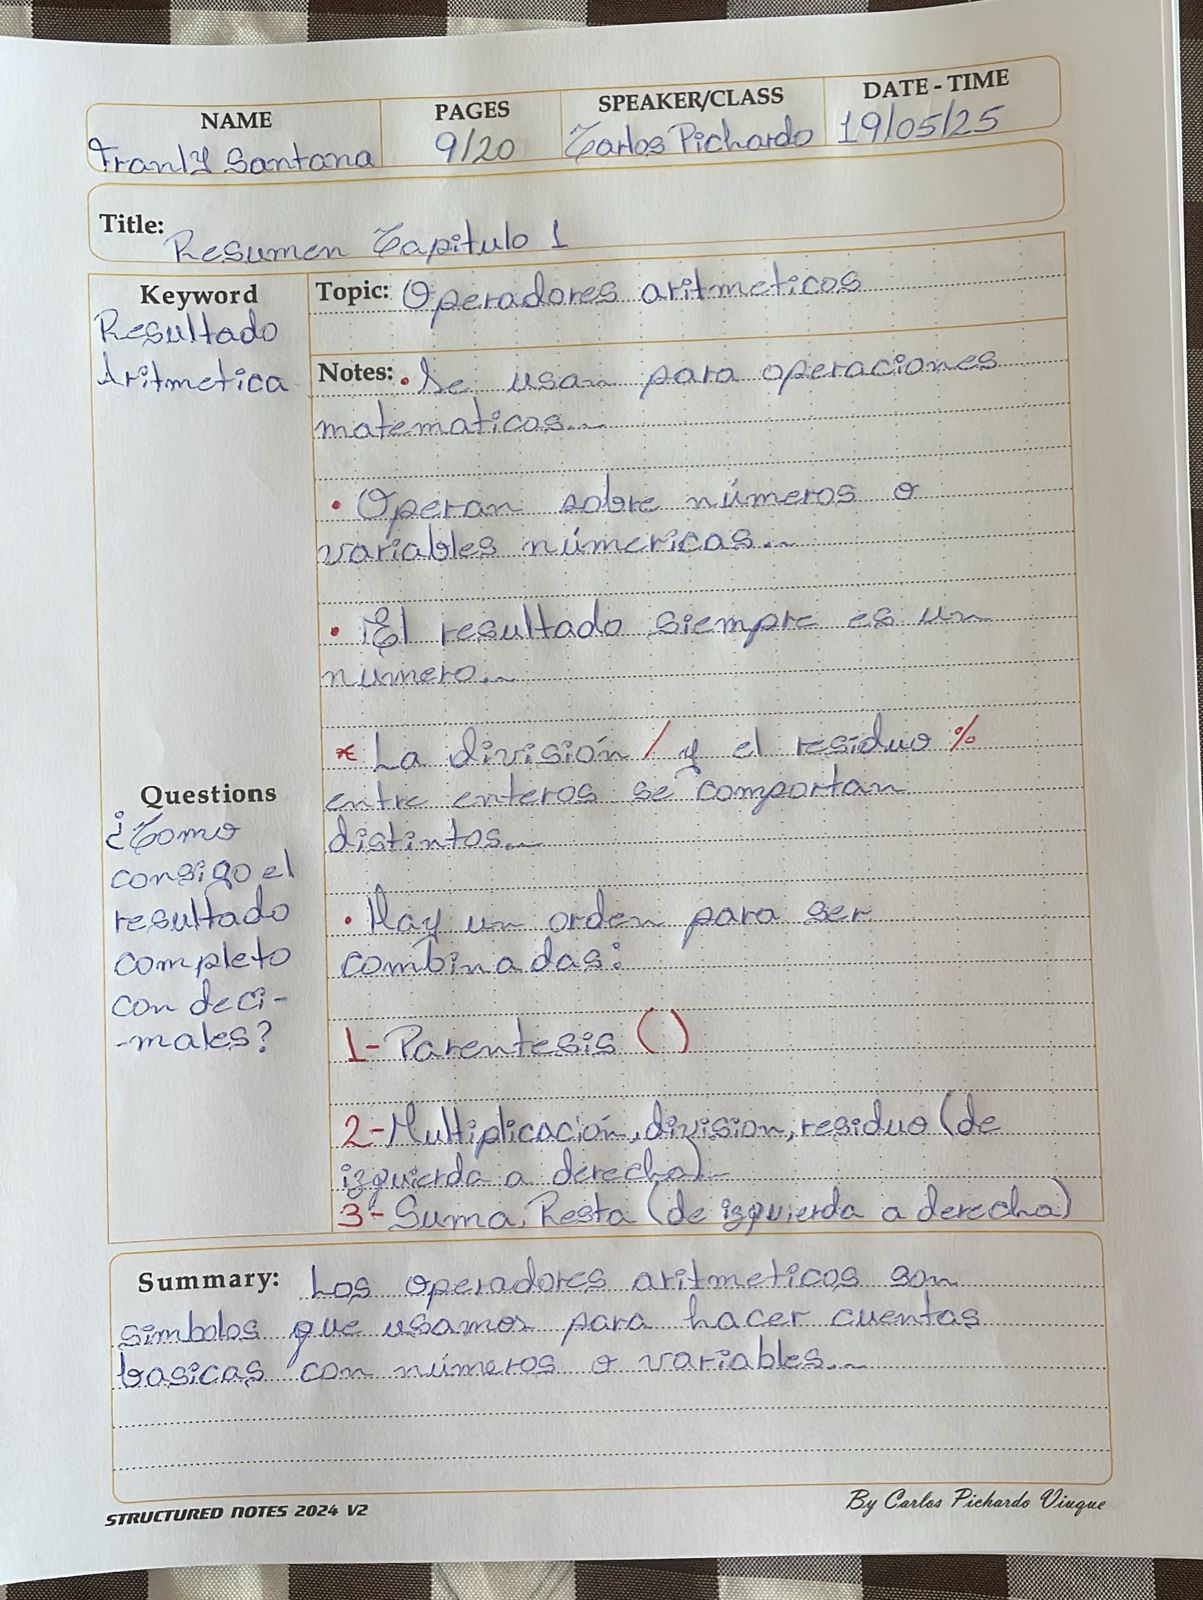 NAME
PAGES
SPEAKER/CLASS
DATE - TIME
Franly Santana
9/20
Carlos Pichardo
19/05/25
Title: Resumen Capitulo 1
Keyword
Resultado
Aritmetica
Topic: Operadores aritmeticos
Notes: • Se usan para operaciones
matematicas...
• Operan sobre números o
variables númericas...
• El resultado siempre es un
número...
* La división / y el residuo %
entre enteros se comportan
distintos...
• Hay un orden para ser
combinadas:
1- Parentesis ( )
2- Multiplicación, division, residuo (de
izquierda a derecha)
3- Suma, Resta (de izquierda a derecha)
Questions
¿Como
consigo el
resultado
completo
con deci-
-males?
Summary: Los operadores aritmeticos son
simbolos que usamos para hacer cuentas
basicas con números o variables...
STRUCTURED NOTES 2024 V2
By Carlos Pichardo Viuque